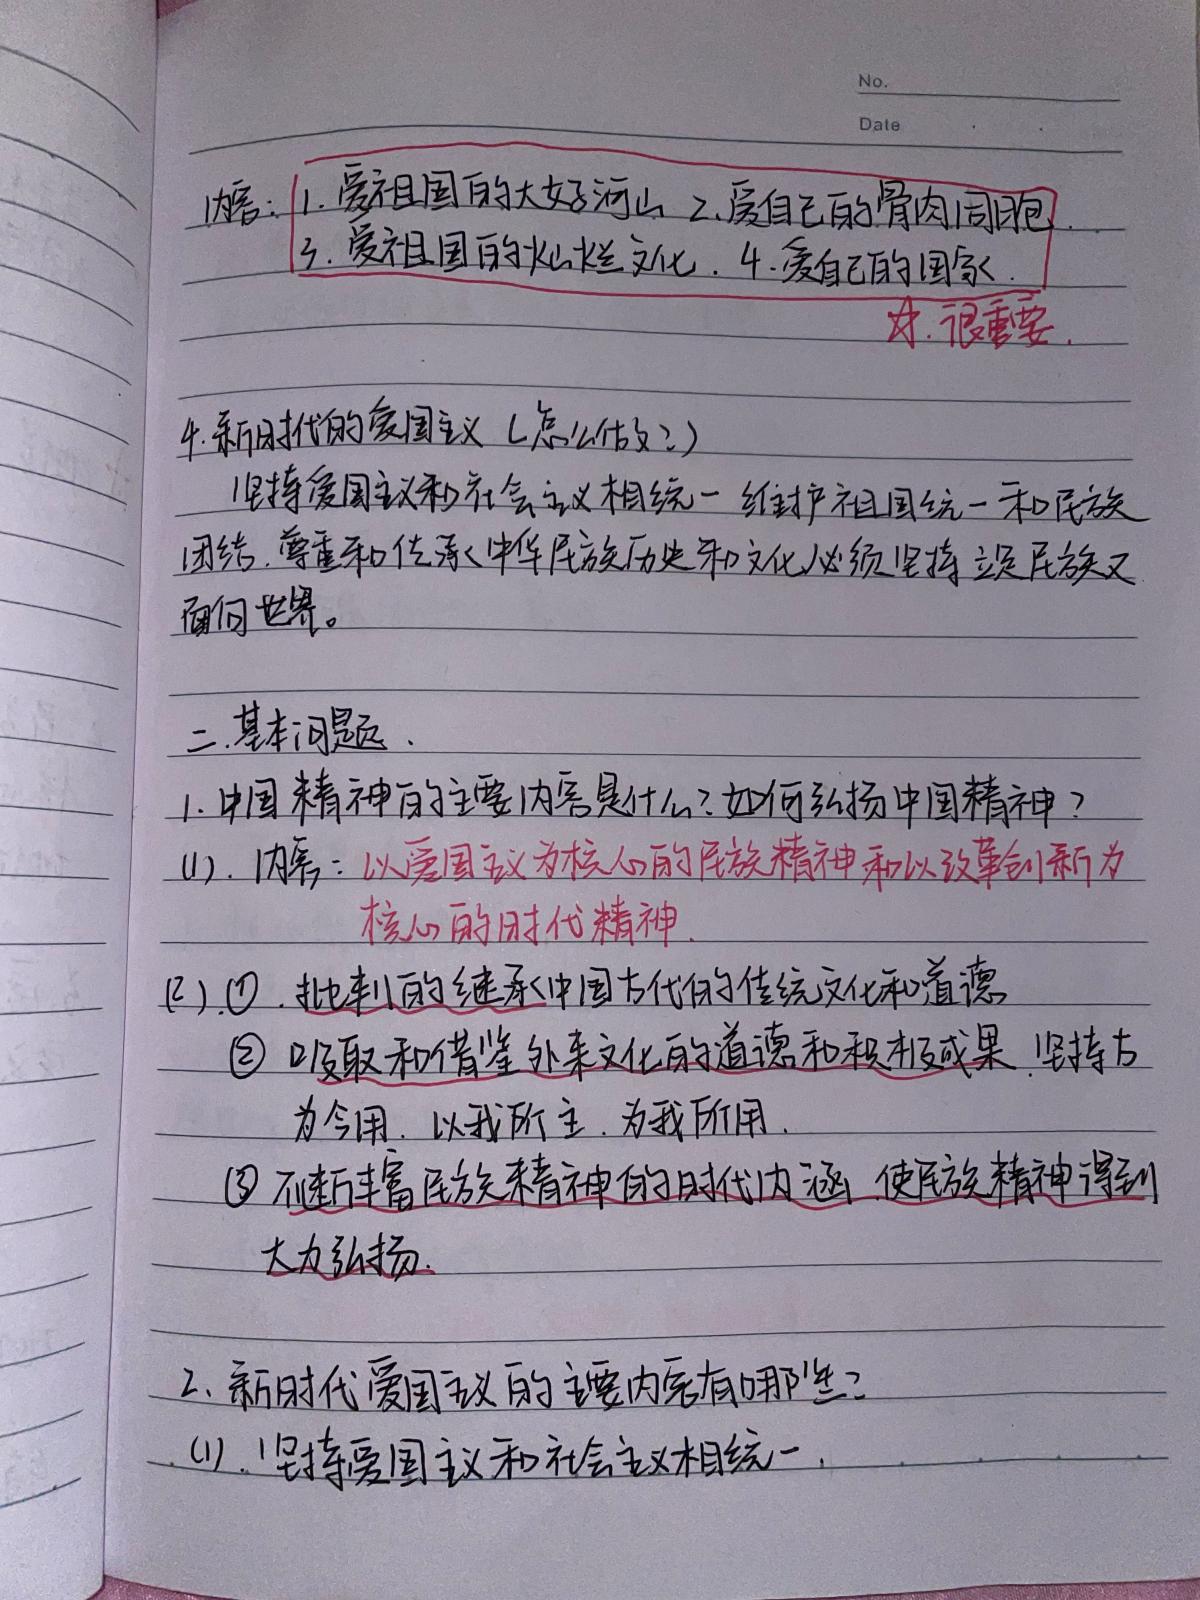 No.
Date
内容：1.爱祖国的大好河山 2.爱自己的骨肉同胞.
3.爱祖国的灿烂文化. 4.爱自己的国家.
☆.很重要.
4.新时代的爱国主义（怎么做？）
坚持爱国主义和社会主义相统一 维护祖国统一和民族
团结.尊重和传承中华民族历史和文化,必须坚持立足民族又
面向世界。
二.基本问题.
1.中国精神的主要内容是什么？如何弘扬中国精神？
(1).内容：以爱国主义为核心的民族精神和以改革创新为
核心的时代精神.
(2).①.批判的继承中国古代的传统文化和道德
②吸取和借鉴外来文化的道德和积极成果.坚持古
为今用.以我所主.为我所用.
③不断丰富民族精神的时代内涵.使民族精神得到
大力弘扬.
2.新时代爱国主义的主要内容有哪些？
(1).坚持爱国主义和社会主义相统一.